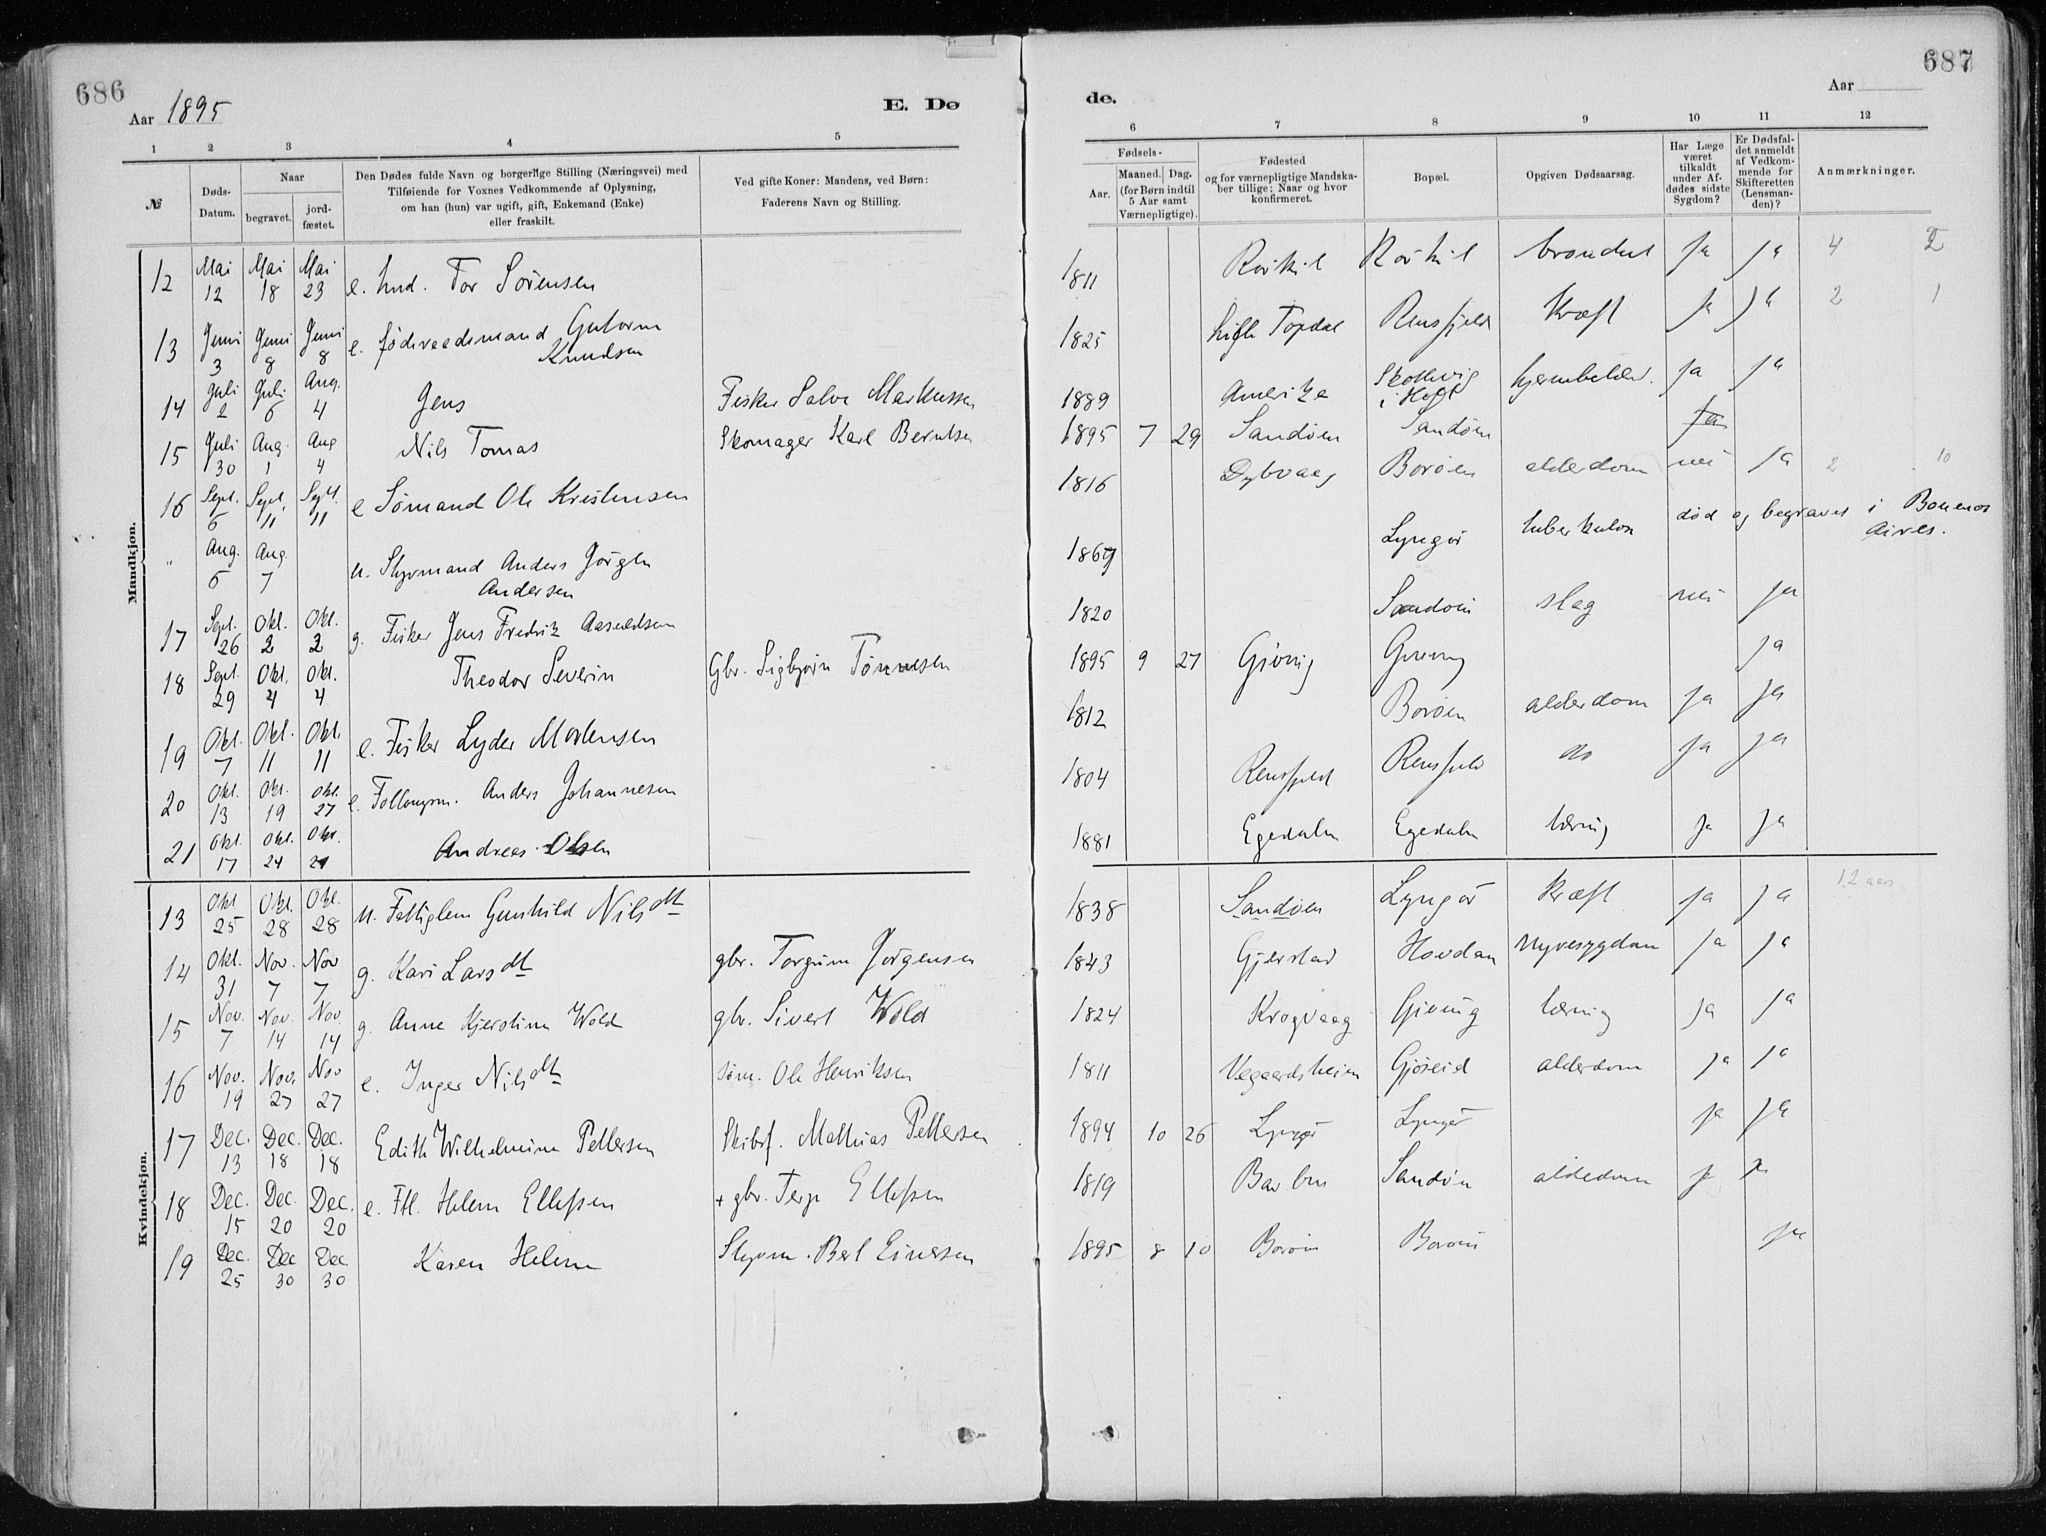 686
Aar 1895
E. Dø
1 2 3 4 5
№
Døds-Datum.
Naar
begravet.
jord-fæstet.
Den Dødes fulde Navn og borgerlige Stilling (Næringsvei) med
Tilføiende for Voxnes Vedkommende af Oplysning,
om han (hun) var ugift, gift, Enkemand (Enke)
eller fraskilt.
Ved gifte Koner: Mandens, ved Børn:
Faderens Navn og Stilling.
Mandkjøn.
12 Mai 12 Mai 18 Mai 23 e. Tor Sörensen
13 Juni 3 Juni 8 Juni 8 e. Guttorm
Knudsen
14 Juli 2 Juli 6 Aug. 4 Jens Fisker Salve Markussen
15 Juli 30 Aug. 1 Aug 4 Nils Tomas Skomager Karl Berntsen
16 Sept. 6 Sept. 11 Sept. 11 e Sömand Ole Kristensen
" Aug. 6 Aug. 7 u. Styrmand Anders Jörgen
Andersen
17 Sept. 26 Okt. 2 Okt. 2 g. Fisker Jens Fredrik
18 Sept. 29 Okt. 4 Okt. 4 Theodor Severin Gbr. Sigbjörn Tönnesen
19 Okt. 7 Okt. 11 Okt. 11 e. Fisker Lyder Mortensen
20 Okt. 13 Okt. 19 Okt. 27 e. Anders Johannesen
21 Okt. 17 Okt. 24 Okt. Andreas Olsen
Kvindekjøn.
13 Okt 25 Okt. 28 Okt. 28 u. Fattiglem Gunhild Nilsdtt
14 Okt. 31 Nov. 7 Nov 7 g. Kari Larsdtt gbr. Jörgensen
15 Nov. 7 Nov. 14 Nov 14 g. Anne Kjerstine Wold gbr. Sivert Wold
16 Nov. 19 Nov. 27 Nov 27 e. Inger Nilsdtt söm. Ole Henriksen
17 Dec. 13 Dec. 18 Dec. 18 Edith Wilhelmine Pettersen Skibsf. Mathias Pettersen
18 Dec. 15 Dec. 20 Dec. 20 e. Helene Ellefsen + gbr. Terje Ellefsen
19 Dec. 25 Dec 30 Dec 30 Karen Helene Styrm. Einersen
687
Aar
de.
6 7 8 9 10 11 12
Fødsels-
Aar.
Maaned. Dag.
(for Børn indtil
5 Aar samt
Værnepligtige).
Fødested
og for værnepligtige Mandska-
ber tillige: Naar og hvor
konfirmeret.
Bopæl.
Opgiven Dødsaarsag.
Har Læge
været
tilkaldt
under Af-
dødes sidste
Sygdom?
Er Dødsfal-
det anmeldt
af Vedkom-
mende for
Skifteretten
(Lensman-
den)?
Anmærkninger.
1811 Ja ja 4
1825 Topdal Kræft Ja ja 2 1
1889 Amerika i Holt ja ja
1895 7 29 Sandöen Sandöen
1816 Dybvaag Boröen alderdom nei ja 2 10
1869 Lyngör tuberkulos död og begravet i Bouenos
Aires.
1820 Sandöen slag nei ja
1895 9 27 Gjöving Gjöving ja
1812 Boröen alderdom ja ja
1804 Rensfjeld Rensfjeld do ja ja
1881 Egedalen Egedalen tæring ja ja
1838 Sandöen Lyngör Kræft ja ja 12 aar
1843 Gjerstad Hovdan nyresygdom ja ja
1824 Krogvaag Gjöving tæring ja ja
1811 Vegaardsheien Gjöseid alderdom ja ja
1894 10 26 Lyngör Lyngör ja ja
1819 Barbu Sandöen alderdom ja
1895 8 10 Boröen Boröen ja